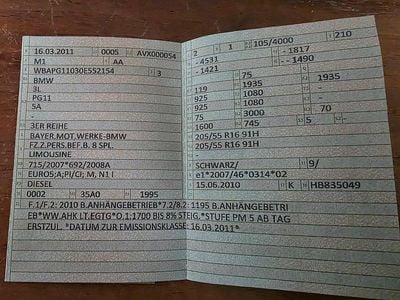 16.03.2011 0005 AVX000054
M1 AA
WBAPG11030E552154 3
BMW
3L
PG11
5A
-
3ER REIHE
BAYER.MOT.WERKE-BMW
FZ.Z.PERS.BEF.B. 8 SPL.
LIMOUSINE
715/2007*692/2008A
EURO5;A;PI/CI; M, N1 I
DIESEL
0002 35A0 1995
2 1 105/4000 210
-4531 - -1817
-1421 - -1490
75 1935
119 1935 -
925 1080 -
925 1080 -
75 3000 - 70
1600 745 5 -
205/55 R16 91H
205/55 R16 91H
-
SCHWARZ/ 9/
e1*2007/46*0314*02
15.06.2010 K HB835049
F.1/F.2: 2010 B.ANHÄNGEBETRIEB*7.2/8.2: 1195 B.ANHÄNGEBETRI
EB*WW.AHK LT.EGTG*O.1:1700 BIS 8% STEIG.*STUFE PM 5 AB TAG
ERSTZUL. *DATUM ZUR EMISSIONKLASSE: 16.03.2011*